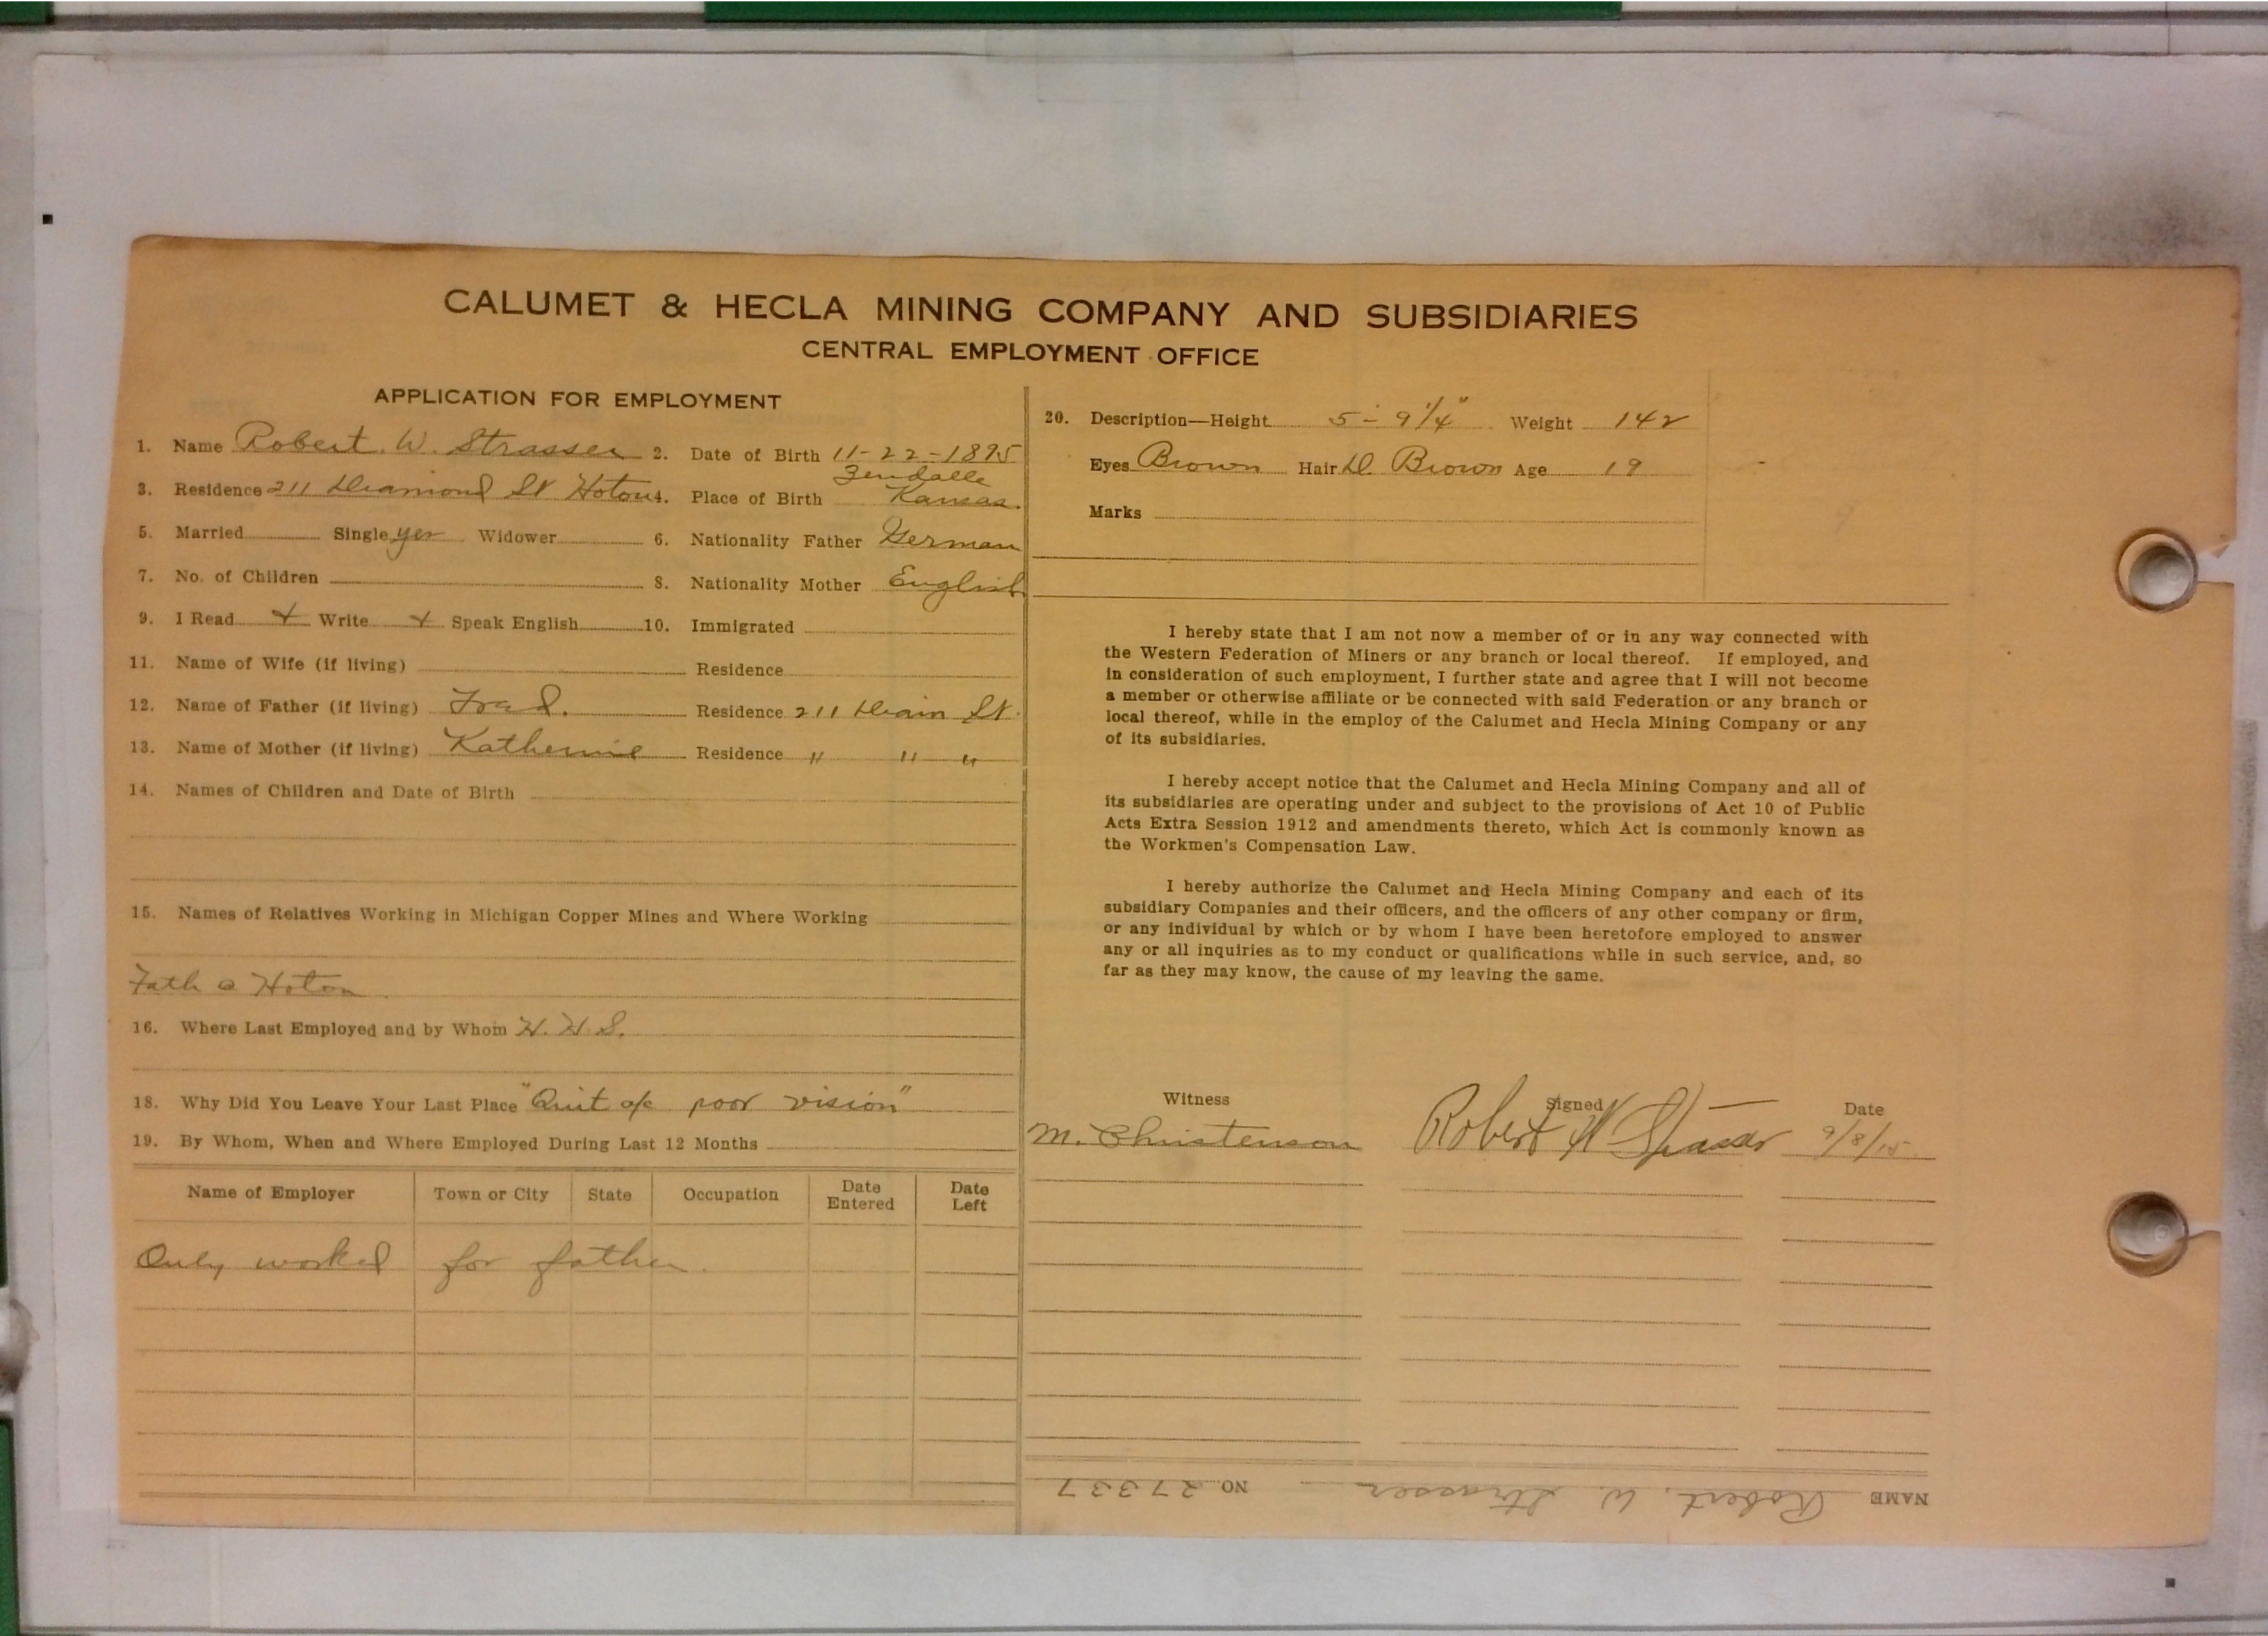 CALUMET & HECLA MINING COMPANY AND SUBSIDIARIES
CENTRAL EMPLOYMENT OFFICE
APPLICATION FOR EMPLOYMENT
1. Name Robert. W. Strasser 2. Date of Birth 11-22-1895
3. Residence 211 Diamond St Hoton 4. Place of Birth Kansas.
5. Married Single yes Widower 6. Nationality Father German
7. No. of Children 8. Nationality Mother English
9. I Read + Write + Speak English 10. Immigrated
11. Name of Wife (if living) Residence
12. Name of Father (if living) Fred. Residence 211 Diam St.
13. Name of Mother (if living) Katherine Residence " " "
14. Names of Children and Date of Birth
15. Names of Relatives Working in Michigan Copper Mines and Where Working
Fath @ Hoton
16. Where Last Employed and by Whom H. H. S.
18. Why Did You Leave Your Last Place "Quit a/c poor vision"
19. By Whom, When and Where Employed During Last 12 Months
Name of Employer Town or City State Occupation Date Entered Date Left
Only worked for father.
20. Description—Height 5'-9 1/4" Weight 142
Eyes Brown Hair D. Brown Age 19
Marks
I hereby state that I am not now a member of or in any way connected with
the Western Federation of Miners or any branch or local thereof. If employed, and
in consideration of such employment, I further state and agree that I will not become
a member or otherwise affiliate or be connected with said Federation or any branch or
local thereof, while in the employ of the Calumet and Hecla Mining Company or any
of its subsidiaries.
I hereby accept notice that the Calumet and Hecla Mining Company and all of
its subsidiaries are operating under and subject to the provisions of Act 10 of Public
Acts Extra Session 1912 and amendments thereto, which Act is commonly known as
the Workmen's Compensation Law.
I hereby authorize the Calumet and Hecla Mining Company and each of its
subsidiary Companies and their officers, and the officers of any other company or firm,
or any individual by which or by whom I have been heretofore employed to answer
any or all inquiries as to my conduct or qualifications while in such service, and, so
far as they may know, the cause of my leaving the same.
Witness Signed Date
M. Christenson Robert W Strasser 9/8/15
NAME Robert. W. Strasser NO. 27337